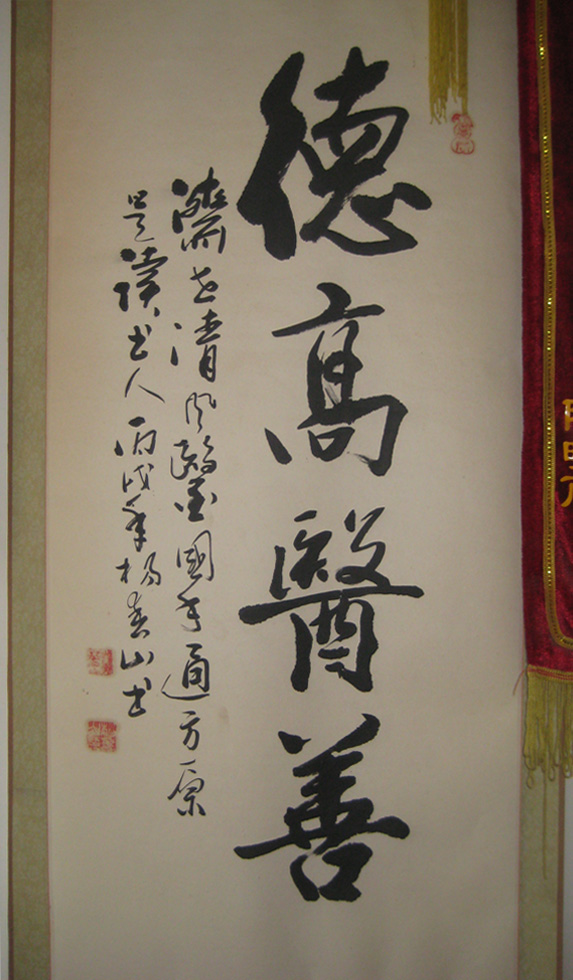 德高醫善
濟世清風醫國手通方原
是讀書人丙戌年楊春山書